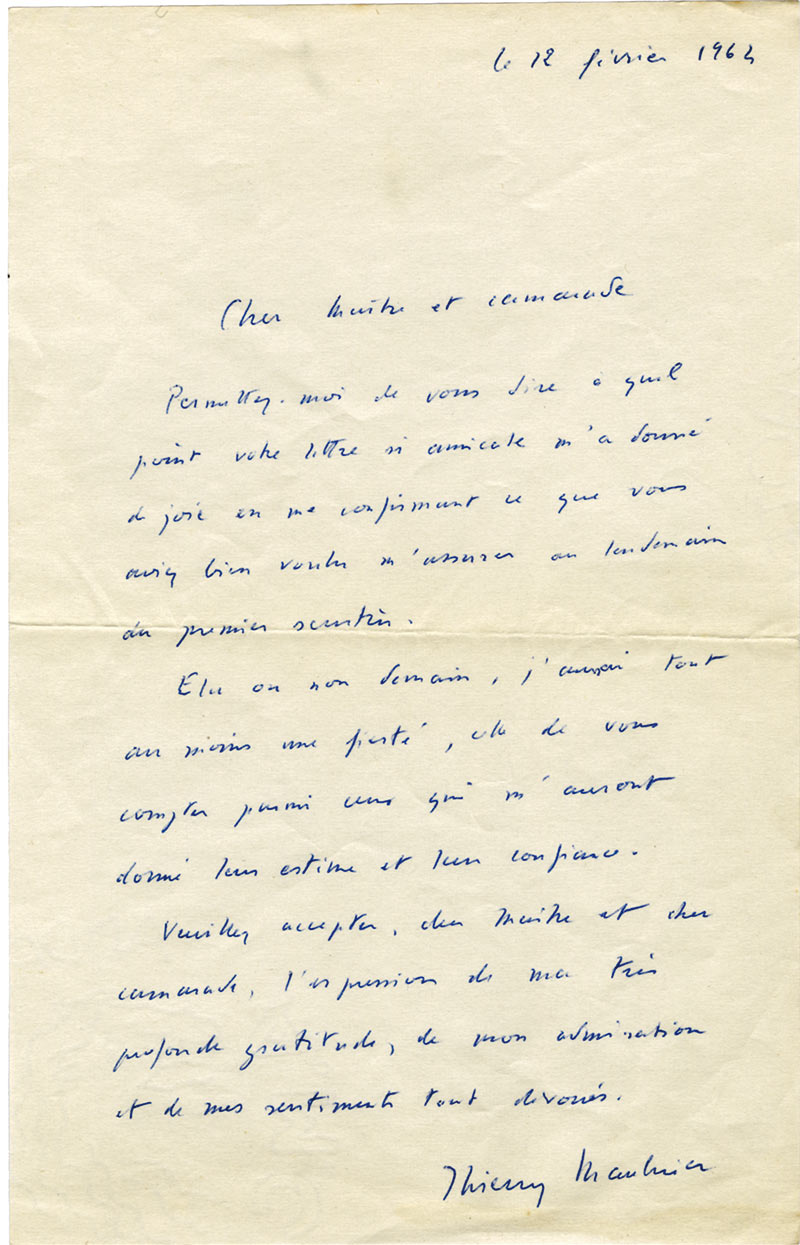 le 12 février 1964
Cher Maître et camarade
Permettez-moi de vous dire à quel
point votre lettre si amicale m'a donné
de joie en me confirmant ce que vous
aviez bien voulu m'assurer au lendemain
du premier scrutin.
Elu ou non demain, j'aurai tout
au moins une fierté, celle de vous
compter parmi ceux qui m'auront
donné leur estime et leur confiance.
Veuillez accepter, cher Maître et cher
camarade, l'expression de ma très
profonde gratitude, de mon admiration
et de mes sentiments tout dévoués.
Thierry Maulnier